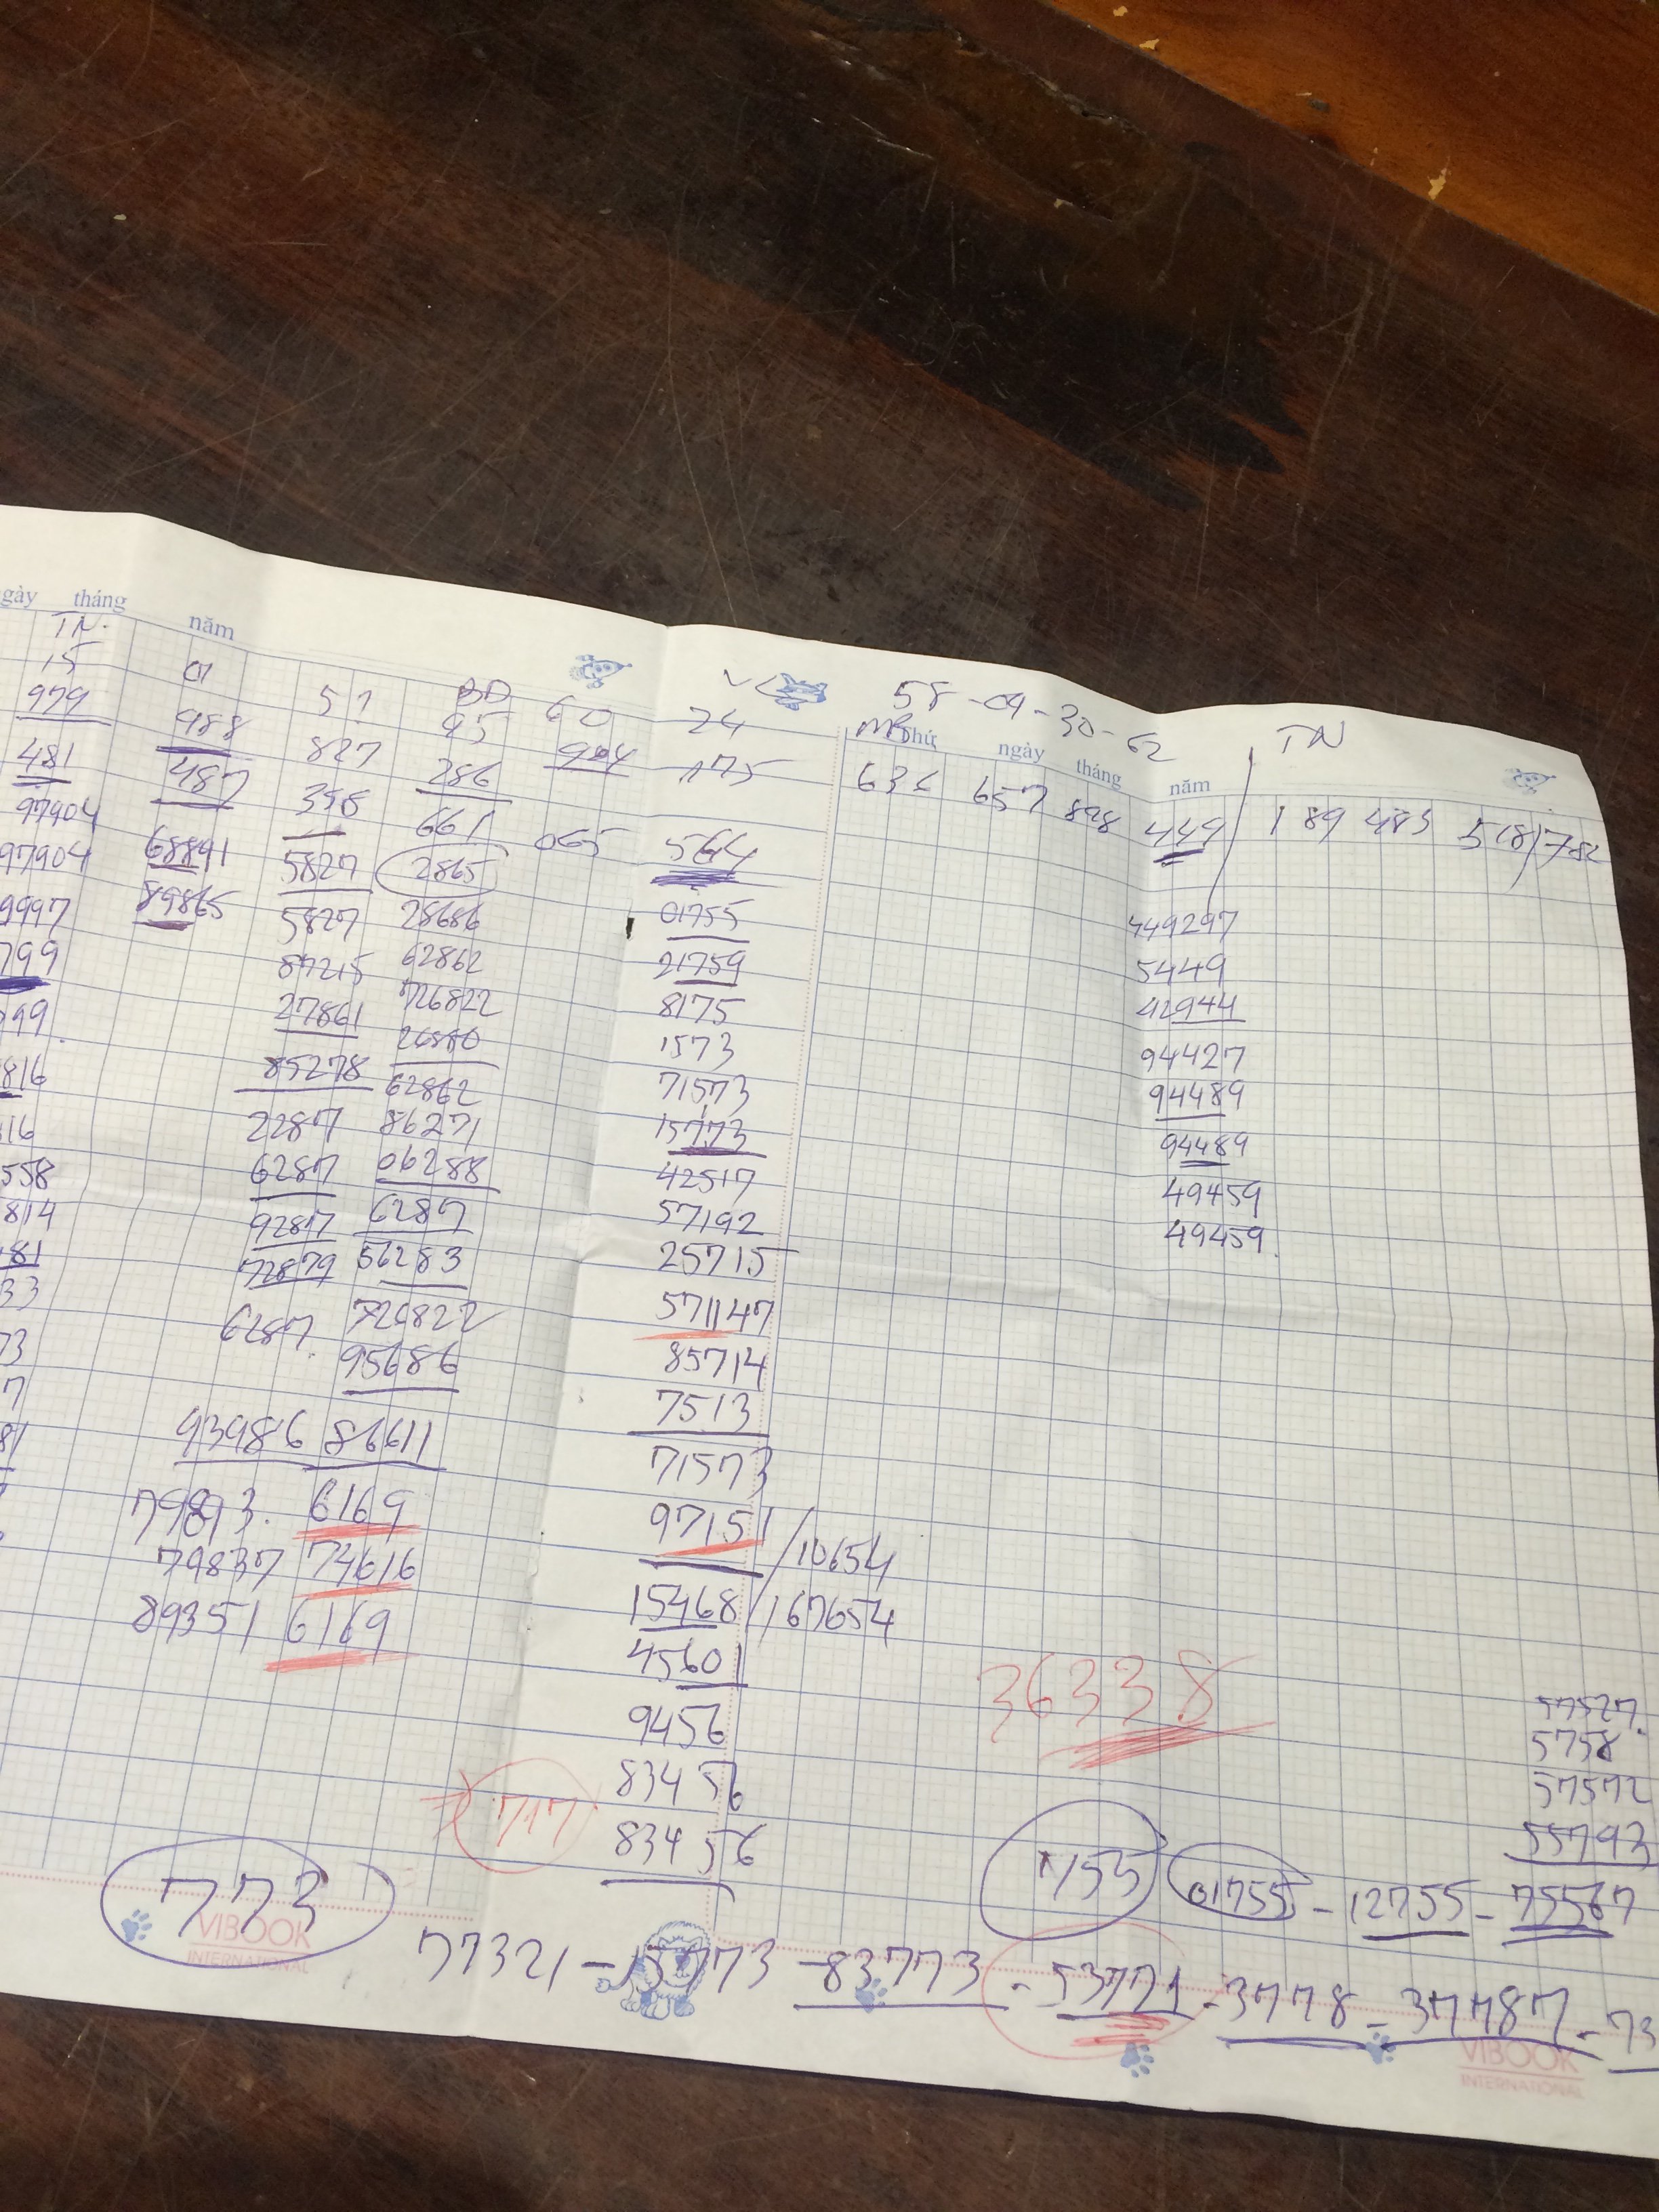 gày tháng năm
TN.
15 01 57 BD 60 24 58-09-30-62 TN
979 988 827 95 175 thứ ngày tháng năm
481 487 286 636 657 828 449 189 483
97904 661 065 564
97904 68891 5827 2865
9997 89865 5827 28686 01755 449297
799 87215 62862 21759 5449
99. 27861 726822 8175 42944
816 85278 26880 1573 94427
16 2287 62862 71573 94489
558 6287 86271 15773 94489
814 9287 06288 42517 49459
81 72879 6287 57192 49459.
33 6287. 56283 25715
73 726822 571147
7 95686 85714
81 93986 86611 7513
79893. 6169 71573
79837 74616 97151 / 10654
89351 6169 15468 / 167654
45601
9456 36338 57527.
83456 5758
717 83456 57572
55793
773 1755 01755 - 12755 - 75567
77321 - 15773 - 83773 - 53771 - 3778 - 37787 - 73
VIBOOK
INTERNATIONAL
VIBOOK
INTERNATIONAL